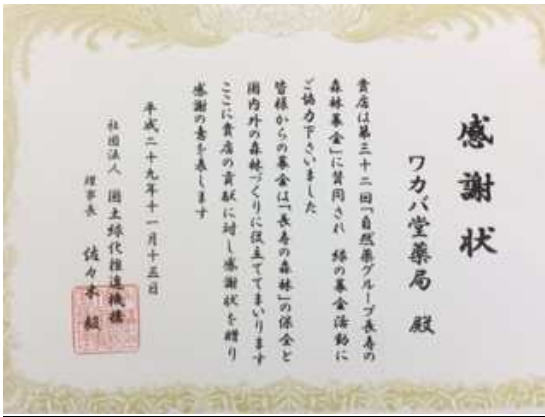 感謝状
ワカバ堂薬局 殿
貴店は第三十二回「自然薬グループ長寿の
森林募金」に賛同され 緑の募金活動に
ご協力下さいました
皆様からの募金は「長寿の森林」の保全と
国内外の森林づくりに役立ててまいります
ここに貴店の貢献に対し感謝状を贈り
感謝の意を表します
平成二十九年十一月十五日
社団法人 国土緑化推進機構
理事長 佐々木 毅